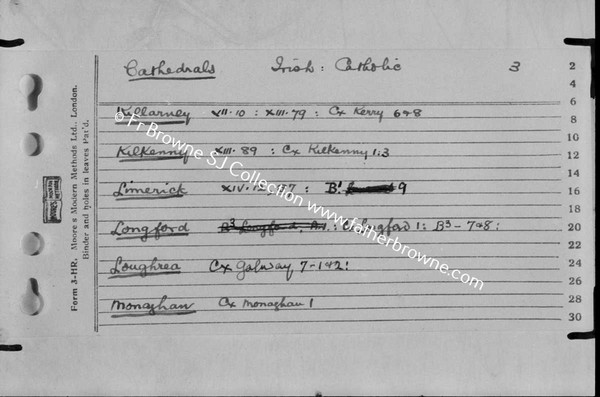 Cathedrals Irish: Catholic 3
Killarney VII.10 : XIII.79 : Cx Kerry 6&8
Kilkenny XIII.89 : Cx Kilkenny 1:3
Limerick XIV.12 7 : B' 9
Longford B³ Longford, : Longford 1: B³-7&8:
Loughrea Cx Galway 7-1&2:
Monaghan Cx Monaghan 1
2
4
6
8
10
12
14
16
18
20
22
24
26
28
30
Form 3-HR. Moore's Modern Methods Ltd., London.
Binder and holes in leaves Pat'd.
© Fr Browne SJ Collection www.fatherbrowne.com